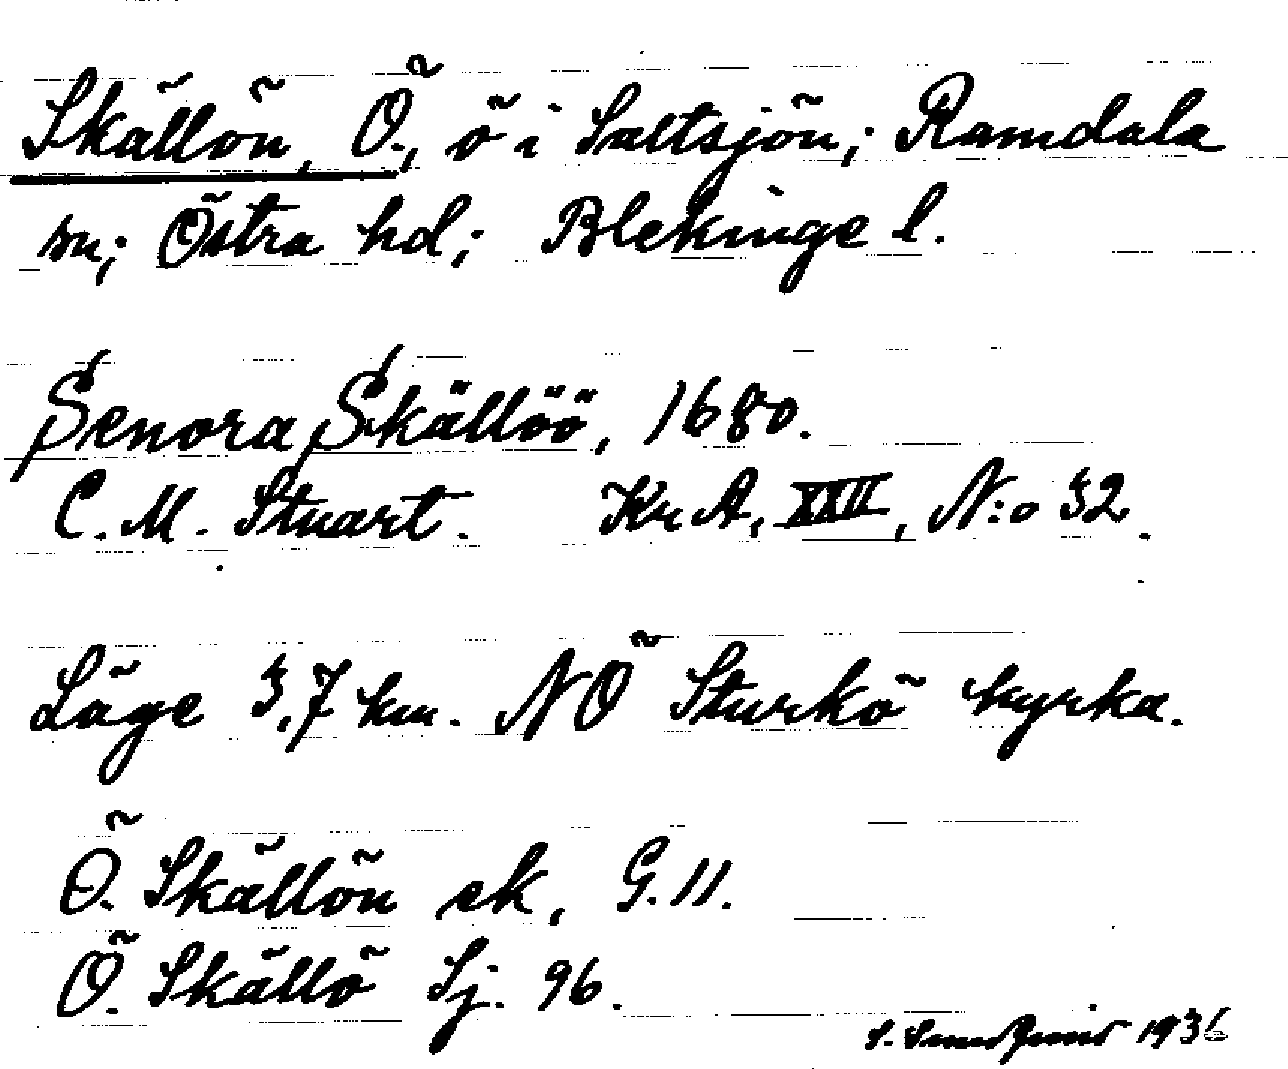 Skällön, Ö., ö i Saltsjön; Ramdala
sn; Östra hd; Blekinge l.
Senora Skällöö, 1680.
C. M. Stuart. KrA, XXII, N:o 32.
Läge 3,7 km. NÖ Sturkö kyrka.
Ö. Skällön ek, G. 11.
Ö. Skällö Sj. 96.
S. 1936